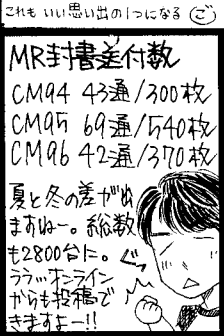 これもいい思い出の1つになる ご
MR封書差付数
CM94 43通/300枚
CM95 69通/540枚
CM96 42通/370枚
夏と冬の差が出
ますねー。総数
も2800台に。
ララ…オーライン
からも投稿で
きますよー!!
ぐっ